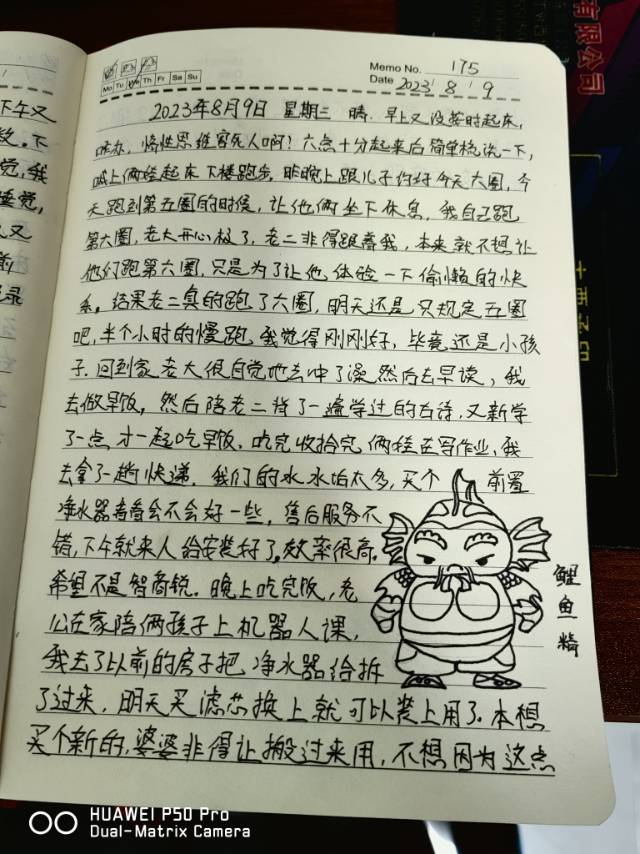 Memo No. 175
Mo Tu We Th Fr Sa Su
Date 2023 / 8 / 9
2023年8月9日 星期三 晴. 早上又没按时起床,
咋办, 惰性思维害死人啊! 六点十分起来后简单梳洗一下,
喊上俩娃起床下楼跑步. 昨晚上跟儿子约好今天六圈, 今
天跑到第五圈的时候, 让他俩坐下休息, 我自己跑
第六圈, 老大开心极了, 老二非得跟着我, 本来就不想让
他们跑第六圈, 只是为了让他体验一下偷懒的快
乐. 结果老二真的跑了六圈, 明天还是只规定五圈
吧, 半个小时的慢跑, 我觉得刚刚好, 毕竟还是小孩
子. 回到家老大很自觉地去冲了澡然后去早读, 我
去做早饭, 然后陪老二背了一遍学过的古诗, 又新学
了一点才一起吃早饭. 吃完收拾完俩娃在写作业, 我
去拿了一趟快递. 我们的水水垢太多, 买个前置
净水器看看会不会好一些, 售后服务不
错, 下午就来人给安装好了, 效率很高.
希望不是智商税. 晚上吃完饭, 老
公在家陪俩孩子上机器人课,
我去了以前的房子把净水器给拆
了过来, 明天买滤芯换上就可以装上用了. 本想
买个新的, 婆婆非得让搬过来用, 不想因为这点
鲤鱼精
下午又
数. 下
觉, 我
睡觉,
又
前
录
有限公司
HUAWEI P50 Pro
Dual-Matrix Camera